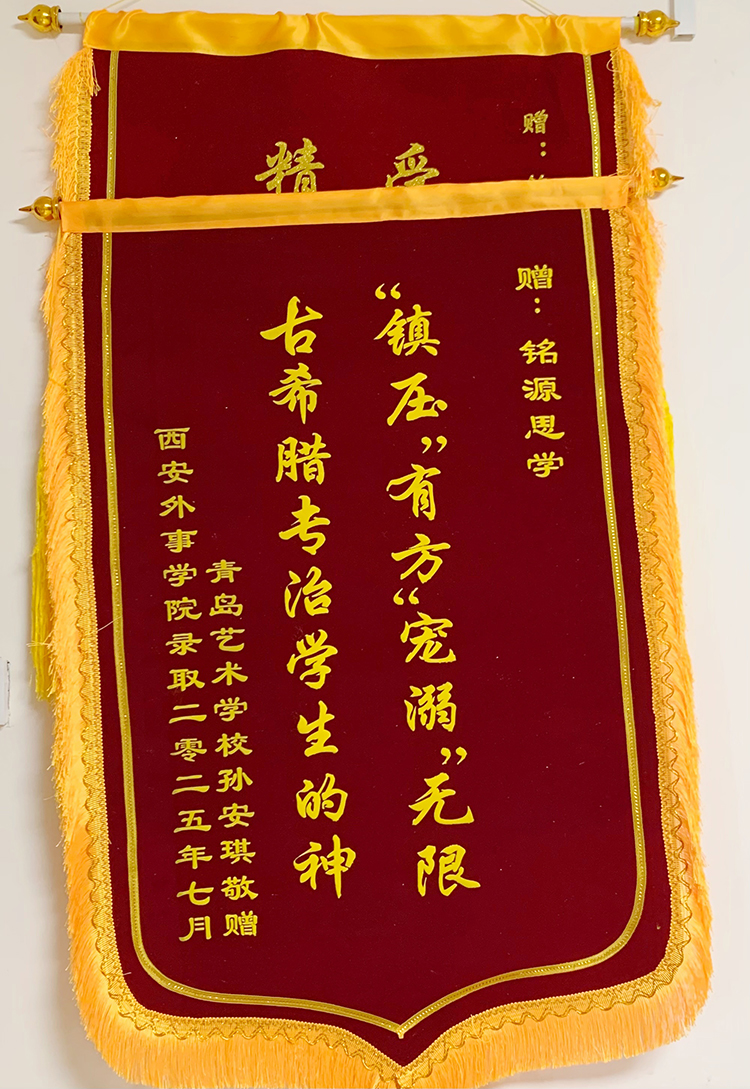 赠：
受
精
赠：铭源思学
“镇压”有方“宠溺”无限
古希腊专治学生的神
青岛艺术学校孙安琪敬赠
西安外事学院录取二零二五年七月